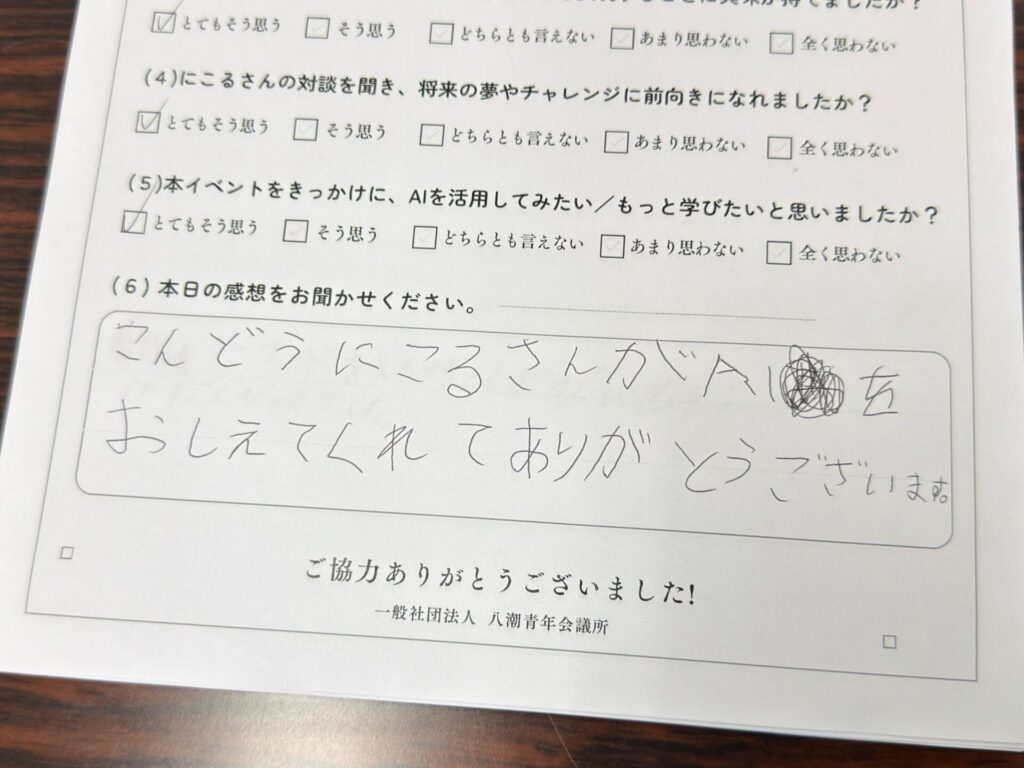 とてもそう思う そう思う どちらとも言えない あまり思わない 全く思わない
(4)にこるさんの対談を聞き、将来の夢やチャレンジに前向きになれましたか？
とてもそう思う そう思う どちらとも言えない あまり思わない 全く思わない
(5)本イベントをきっかけに、AIを活用してみたい／もっと学びたいと思いましたか？
とてもそう思う そう思う どちらとも言えない あまり思わない 全く思わない
(6)本日の感想をお聞かせください。
こんどうにこるさんがAIを
おしえてくれてありがとうございます。
ご協力ありがとうございました!
一般社団法人 八潮青年会議所